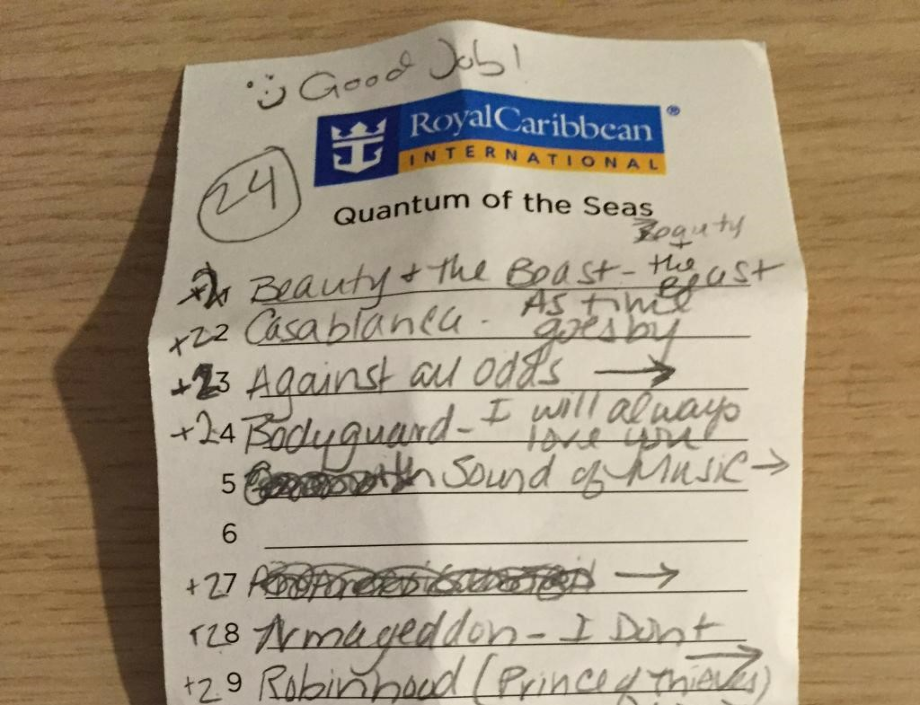 Good Job!
RoyalCaribbean®
INTERNATIONAL
24
Quantum of the Seas
Beauty + the Beast - Beauty + the Beast
+22 Casablanca - As time goes by
+23 Against all odds →
+24 Bodyguard - I will always love you
5 Sound of Music →
6
+27 →
+28 Armageddon - I Dont →
+29 Robinhood (Prince of Thieves)